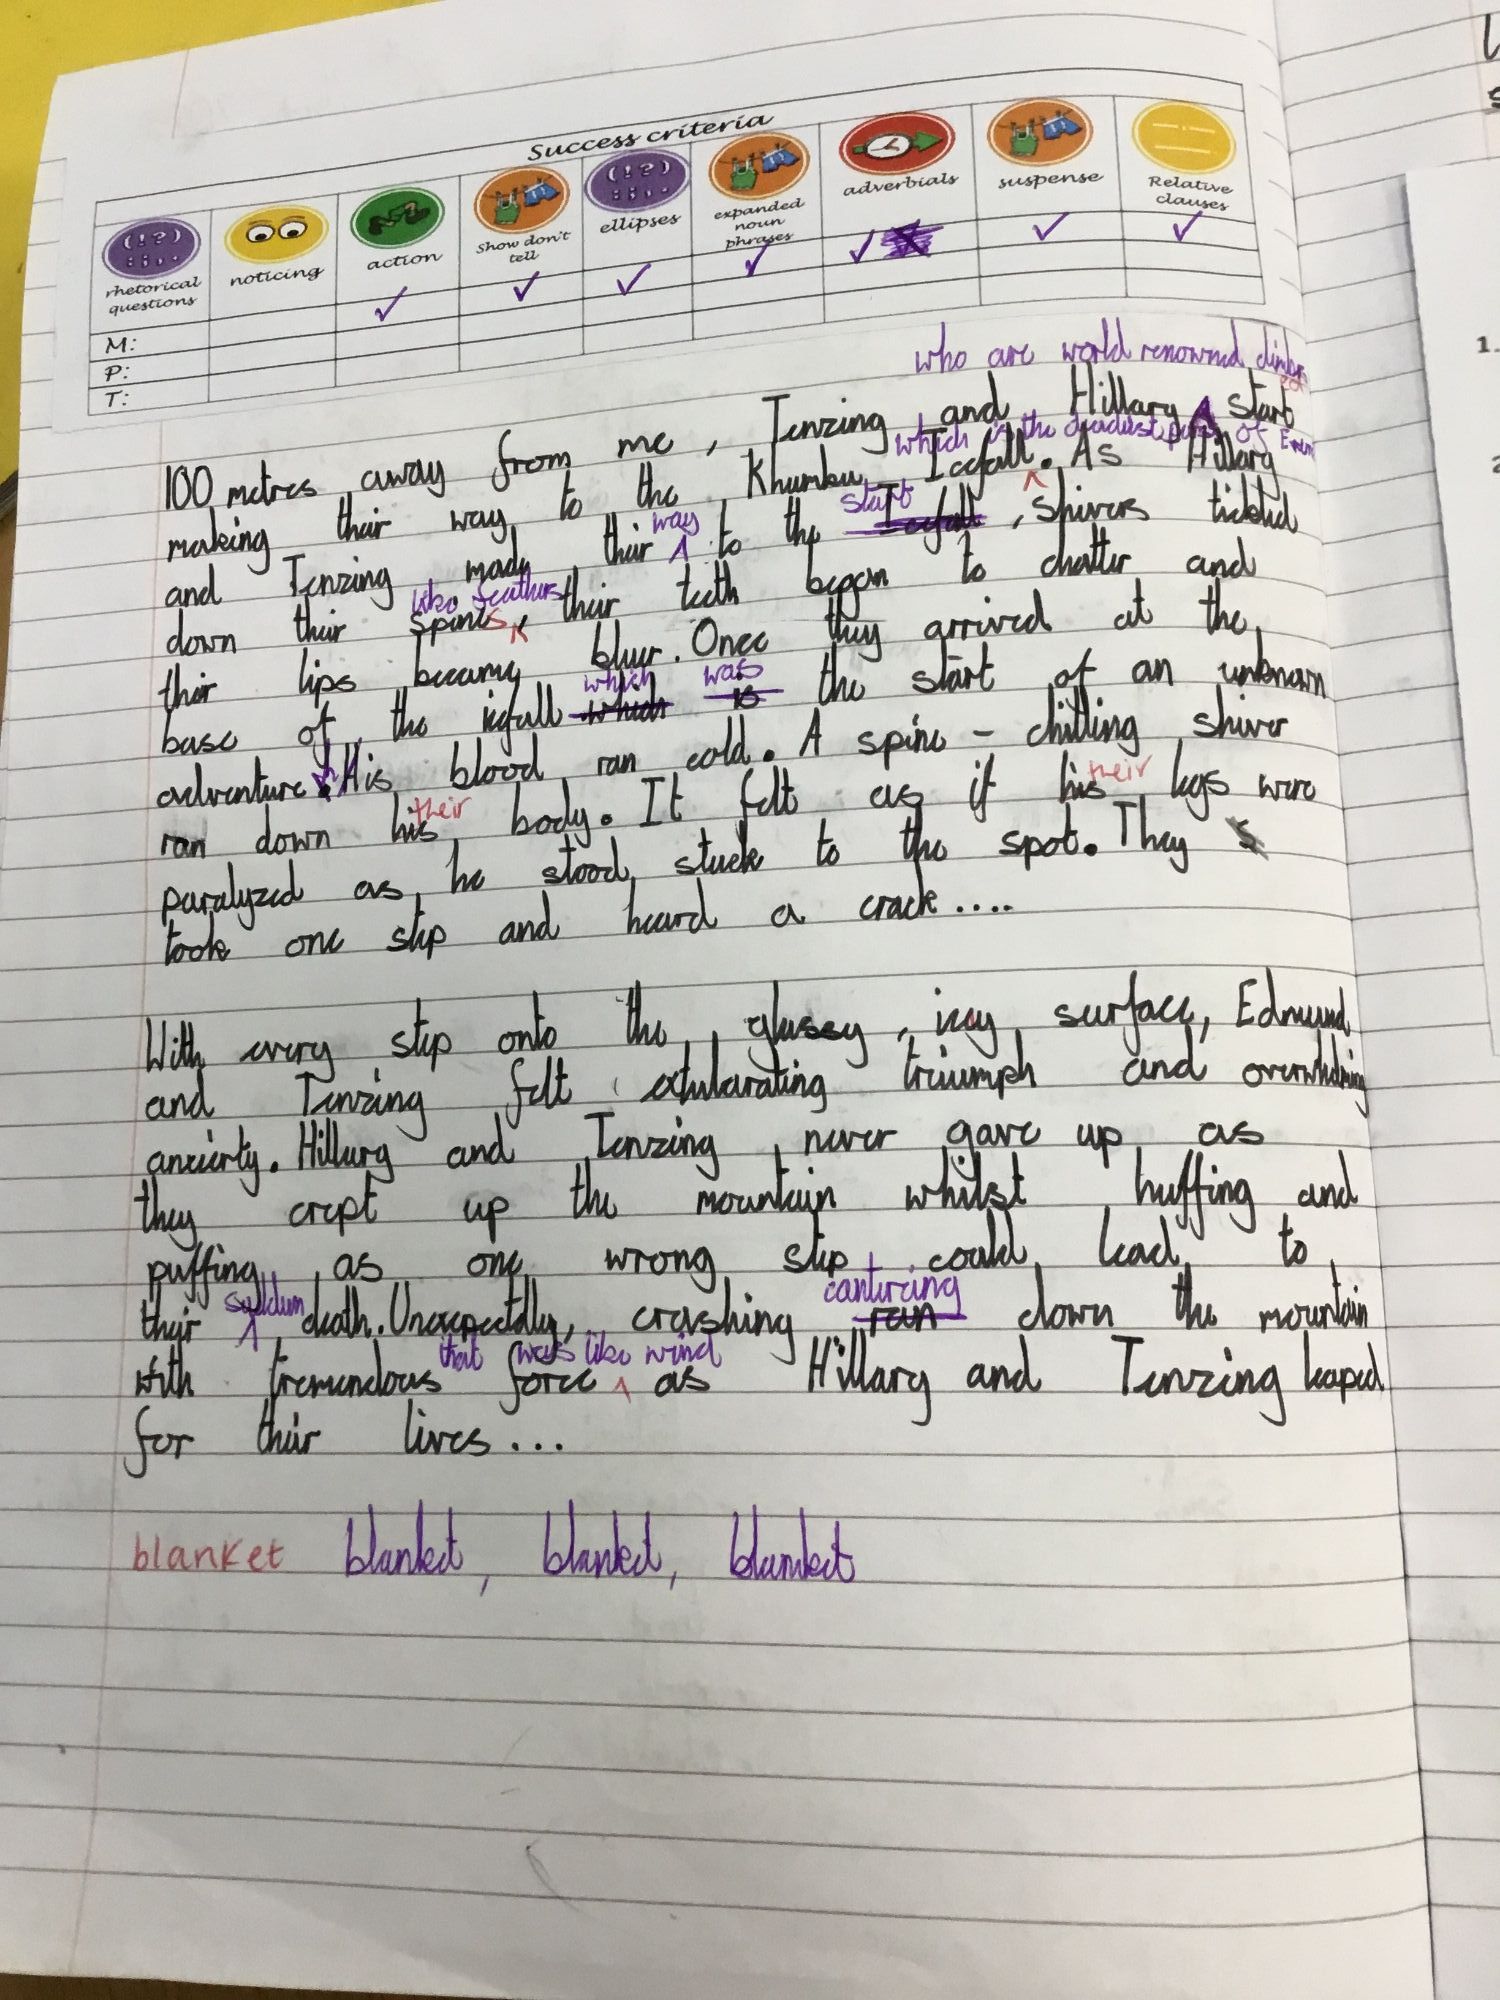 Success criteria
rhetorical questions
noticing
action
Show don't tell
ellipses
expanded noun phrases
adverbials
suspense
Relative clauses
M:
P:
T:
who are world renowned
100 metres away from me, Tenzing and Hillary start
which is the deadliest of
making their way to the Khumbu Icefall. As Hillary
way start
and Tenzing made their to the Icefall, shivers tickled
like feathers
down their spines, their teeth began to chatter and
their lips became blue. Once they arrived at the
which was
base of the icefall which is the start of an unknown
adventure. His blood ran cold. A spine-chilling shiver
their their
ran down his body. It felt as if his legs were
paralyzed as he stood stuck to the spot. They
took one step and heard a crack....
With every step onto the glassy, icey surface, Edmund
and Tenzing felt exhularating triumph and overwhelming
anxierty. Hillary and Tenzing never gave up as
they crept up the mountain whilst huffing and
puffing as one wrong step could lead to
canturing
their death. Unexpectedly, crashing ran down the mountain
that was like wind
with tremendous force as Hillary and Tenzing leaped
for their lives...
blanket blanket, blanket, blanket
1.
2